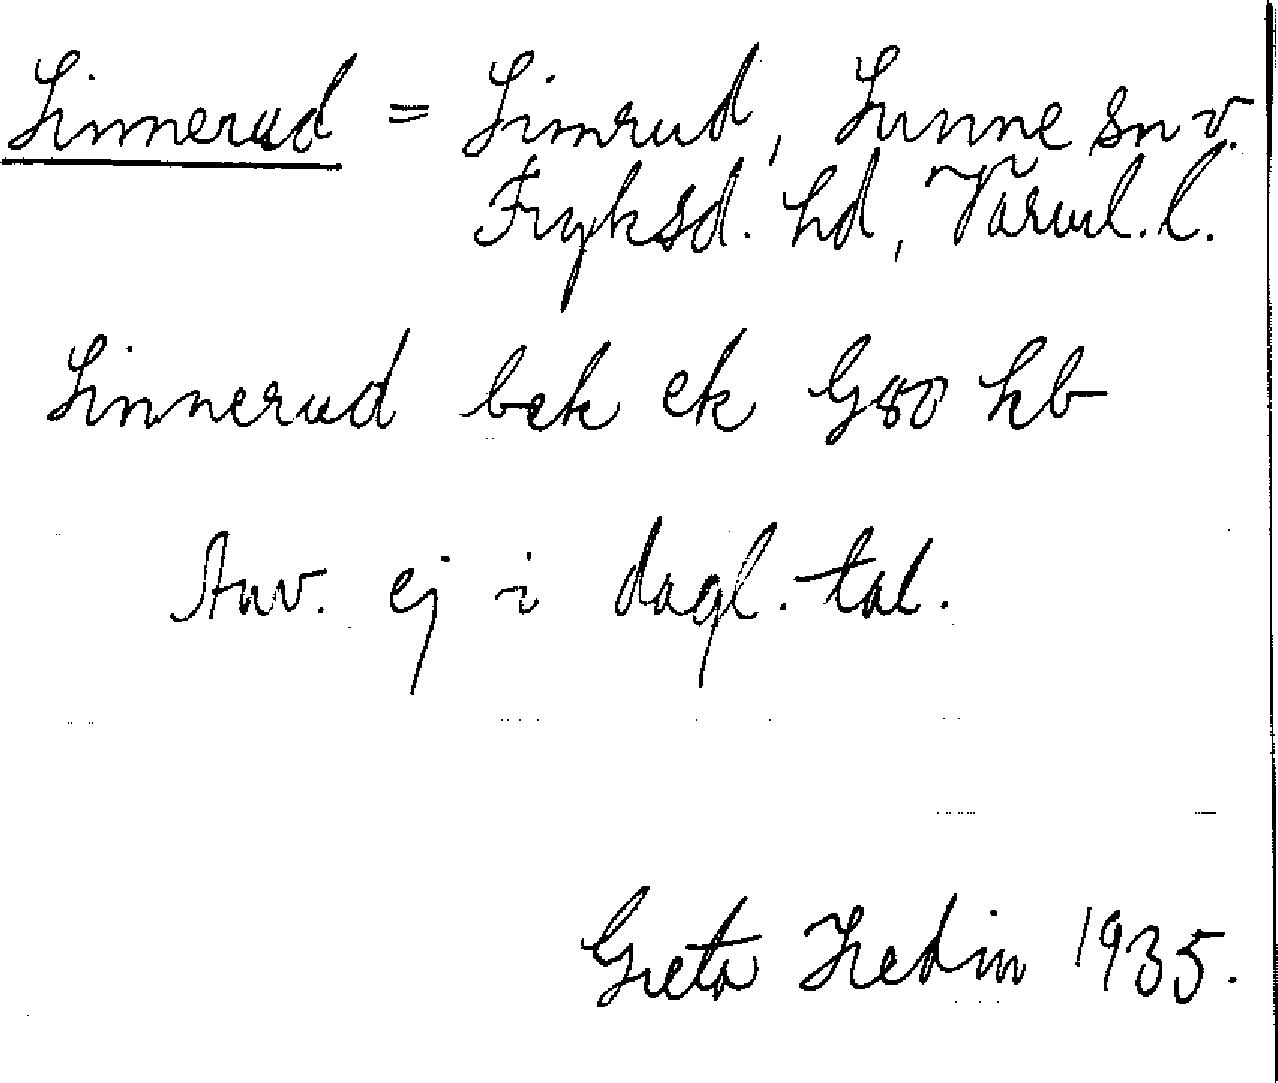 Sinnerud = Simrud, Sunne sn v.
Fryksd. hd, Värml. l.
Sinnerud bek ek G80 hb
Anv. ej i dagl. tal.
Greta Hedin 1935.